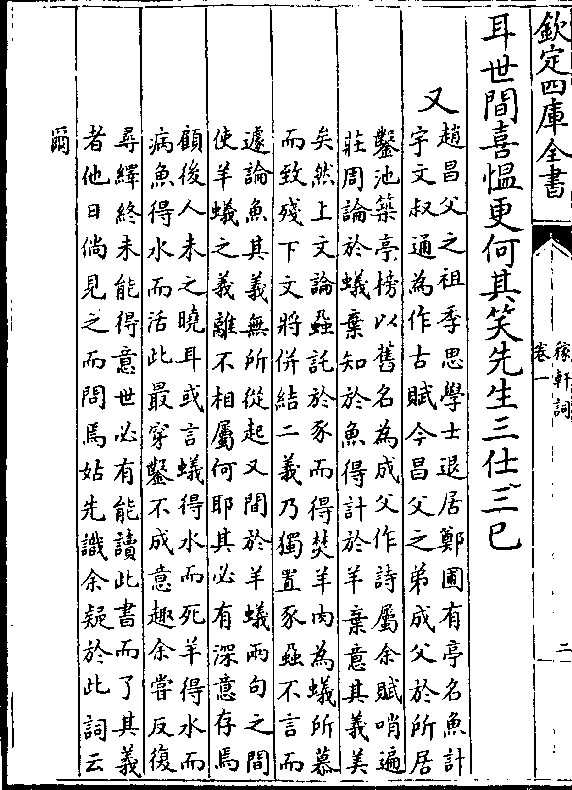 欽定四庫全書
稼軒詞
卷一
二
耳世間喜愠更何其笑先生三仕三已
又
趙昌父之祖季思學士退居鄭圃有亭名魚計
宇文叔通為作古賦今昌父之弟成父於所居
鑿池築亭榜以舊名為成父作詩屬余賦哨遍
莊周論於蟻棄知於魚得計於羊棄意其義美
矣然上文論蝨託於豕而得焚羊肉為蟻所慕
而致殘下文將併結二義乃獨置豕蝨不言而
遽論魚其義無所從起又間於羊蟻兩句之間
使羊蟻之義離不相屬何耶其必有深意存焉
顧後人未之曉耳或言蟻得水而死羊得水而
病魚得水而活此最穿鑿不成意趣余嘗反復
尋繹終未能得意世必有能讀此書而了其義
者他日倘見之而問焉姑先識余疑於此詞云
爾